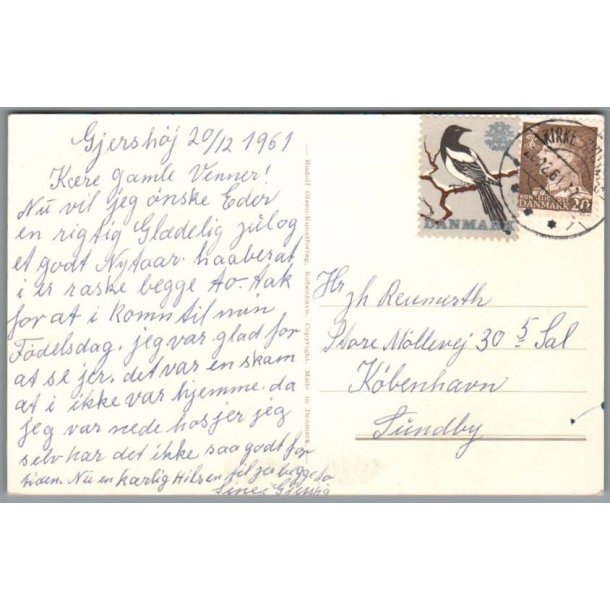 Gjershöj 20/12 1961
Kære gamle Venner!
Nu vil jeg önske Eder
en rigtig Glædelig jul og
et godt Nytaar. haaber at
i er raske begge To. tak
for at i kom til min
Födelsdag, jeg var glad for
at se jer. det var en skam
at i ikke var hjemme. da
jeg var nede hos jer jeg
selv har det ikke saa godt for
tiden. Nu en kærlig Hilsen til jer begge to
Rudolf Olsens Kunstforlag, København. Copyright. Made in Denmark
DANMARK
KIRKE
DANMARK
Hr
Store Möllevej 30 5 Sal
København
Sundby